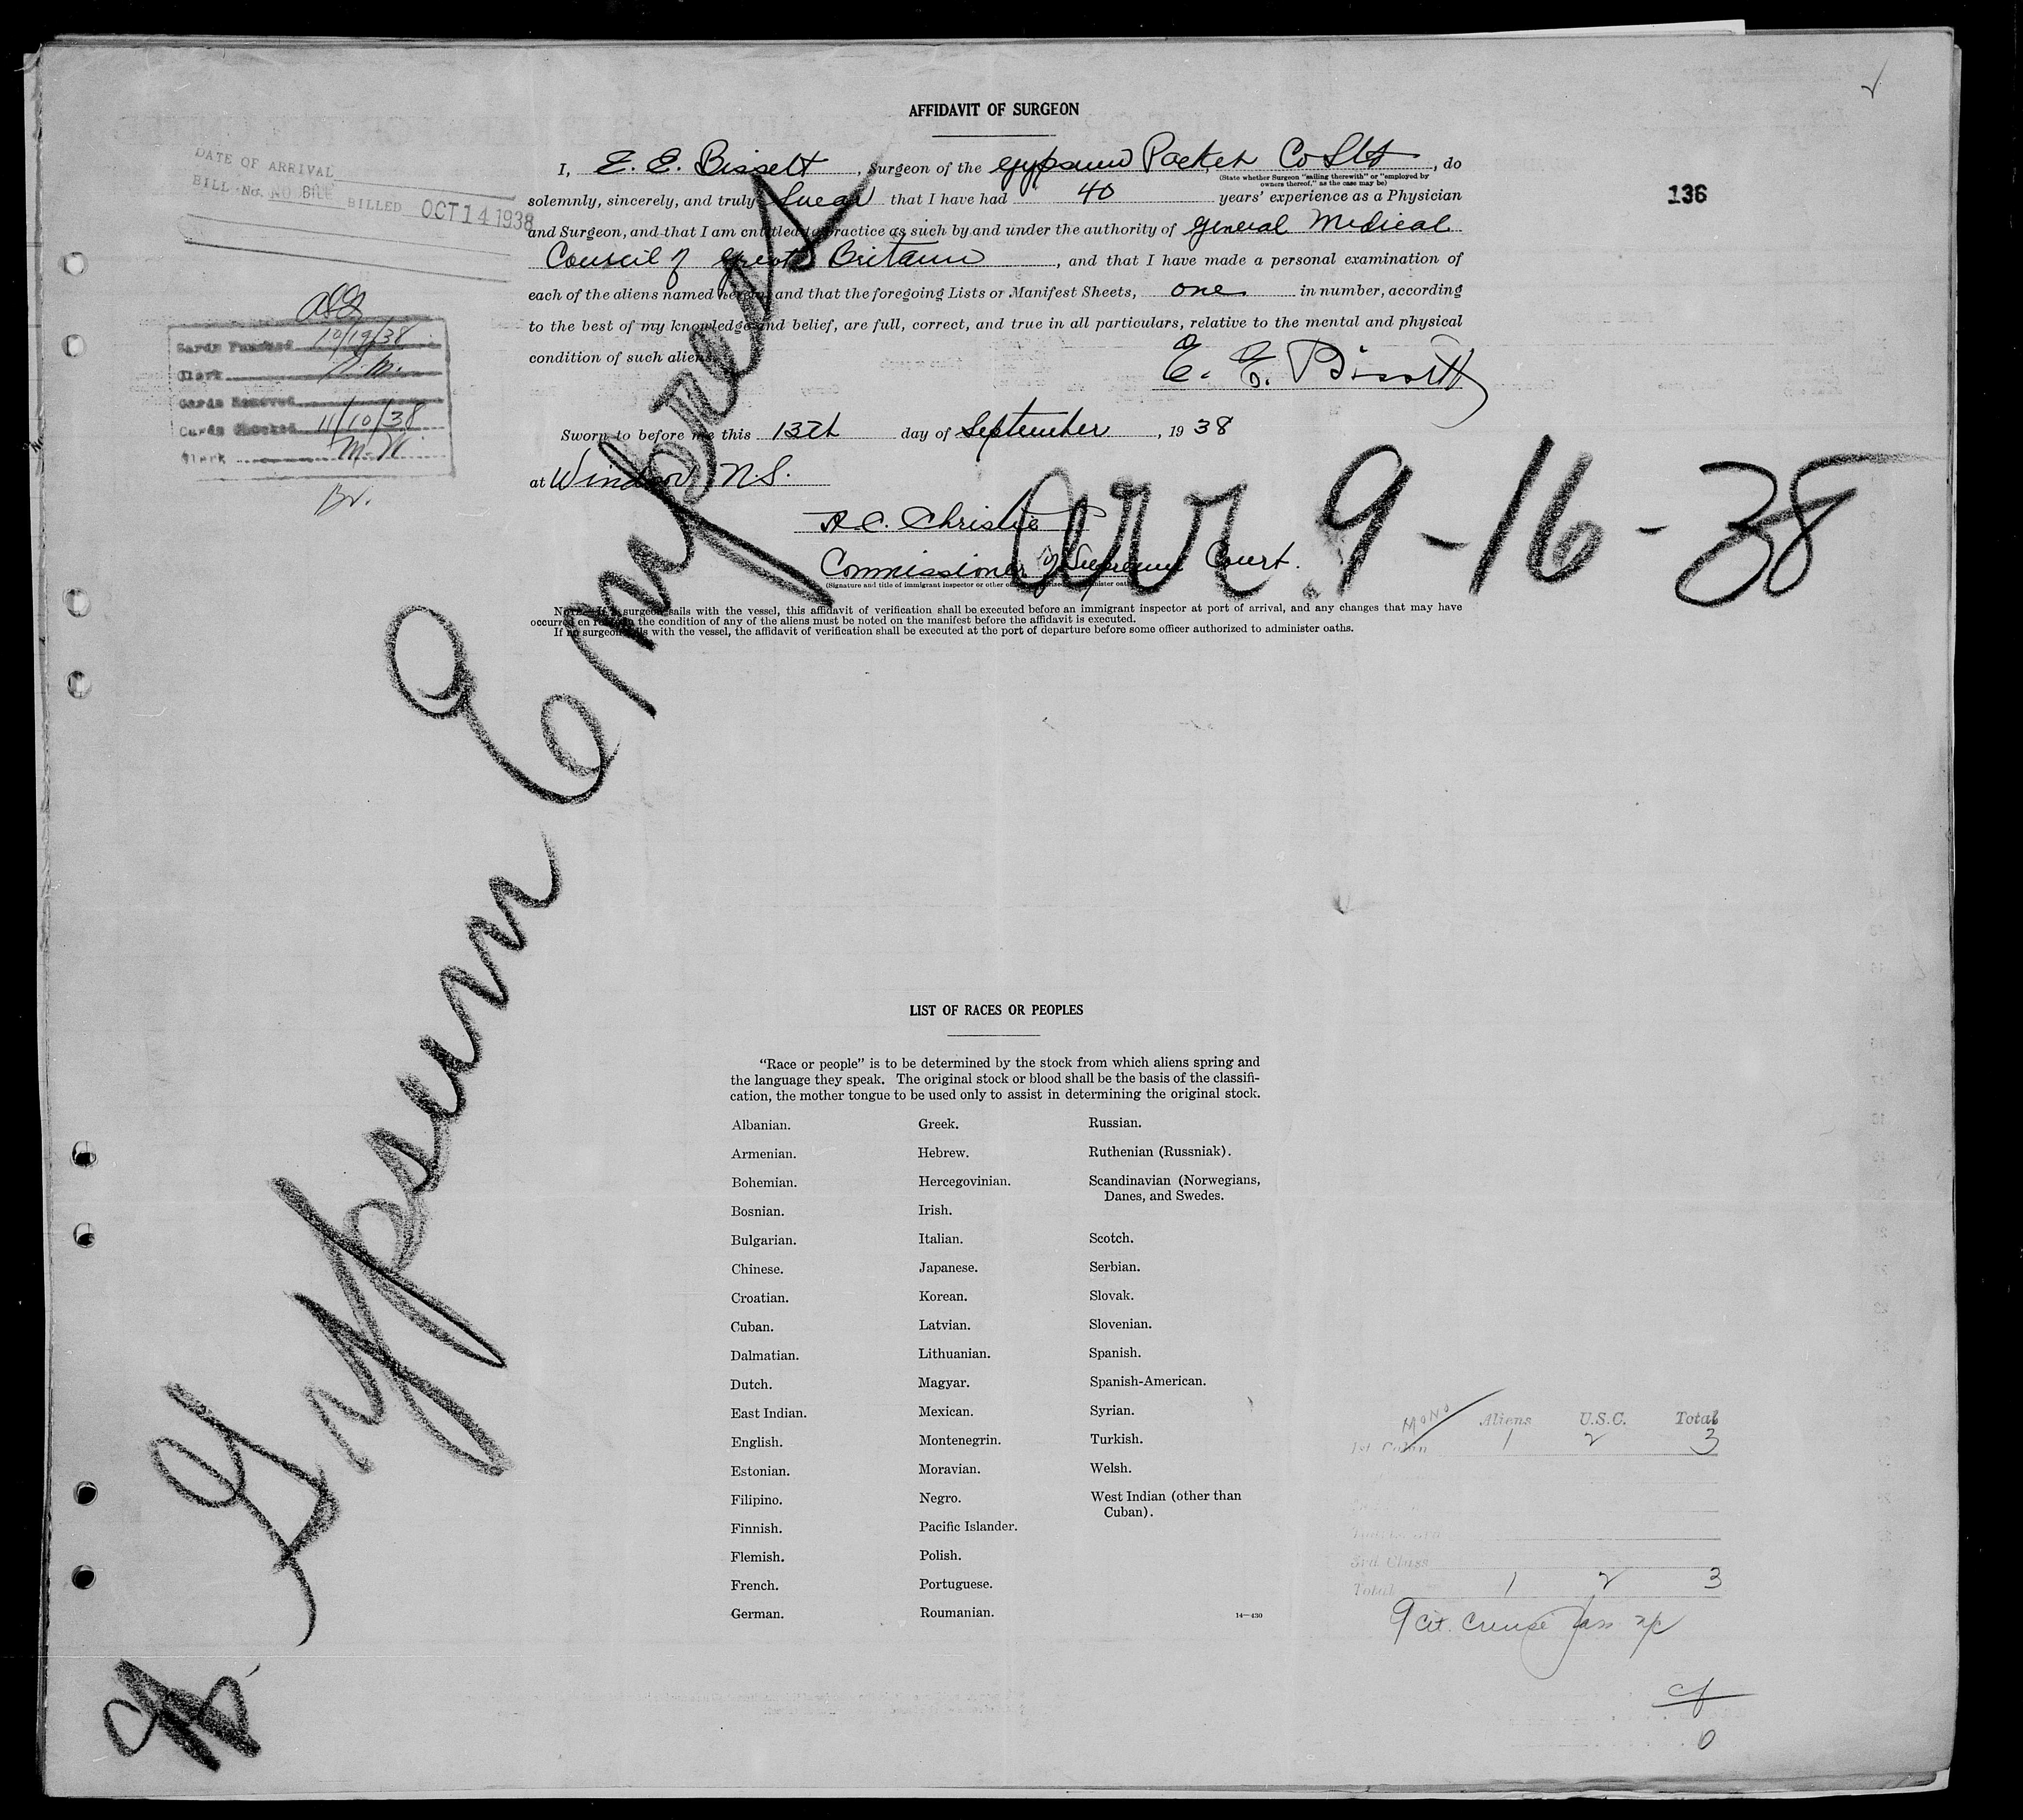 AFFIDAVIT OF SURGEON
I, E. E. Bissett, Surgeon of the Gypsum Packet Co Ltd, do
(State whether Surgeon "sailing therewith" or "employed by
owners thereof," as the case may be)
solemnly, sincerely, and truly swear that I have had 40 years' experience as a Physician
and Surgeon, and that I am entitled to practice as such by and under the authority of General Medical
Council of Great Britain, and that I have made a personal examination of
each of the aliens named herein, and that the foregoing Lists or Manifest Sheets, one in number, according
to the best of my knowledge and belief, are full, correct, and true in all particulars, relative to the mental and physical
condition of such aliens.
E. E. Bissett
Sworn to before me this 13th day of September, 1938
at Windsor, N.S.
A. C. Christie
Commissioner of Supreme Court.
(Signature and title of immigrant inspector or other officer authorized to administer oaths)
NOTE.—If a surgeon sails with the vessel, this affidavit of verification shall be executed before an immigrant inspector at port of arrival, and any changes that may have
occurred en route in the condition of any of the aliens must be noted on the manifest before the affidavit is executed.
If no surgeon sails with the vessel, the affidavit of verification shall be executed at the port of departure before some officer authorized to administer oaths.
136
DATE OF ARRIVAL
BILL No. NO BILL BILLED OCT 14 1938
Cards Punched 10/19/38
Clerk
Cards Removed
Cards Checked 11/10/38
Clerk M.N.
Gypsum Empress
arr. 9-16-38
LIST OF RACES OR PEOPLES
"Race or people" is to be determined by the stock from which aliens spring and
the language they speak. The original stock or blood shall be the basis of the classifi-
cation, the mother tongue to be used only to assist in determining the original stock.
Albanian.
Armenian.
Bohemian.
Bosnian.
Bulgarian.
Chinese.
Croatian.
Cuban.
Dalmatian.
Dutch.
East Indian.
English.
Estonian.
Filipino.
Finnish.
Flemish.
French.
German.
Greek.
Hebrew.
Hercegovinian.
Irish.
Italian.
Japanese.
Korean.
Latvian.
Lithuanian.
Magyar.
Mexican.
Montenegrin.
Moravian.
Negro.
Pacific Islander.
Polish.
Portuguese.
Roumanian.
Russian.
Ruthenian (Russniak).
Scandinavian (Norwegians,
Danes, and Swedes.
Scotch.
Serbian.
Slovak.
Slovenian.
Spanish.
Spanish-American.
Syrian.
Turkish.
Welsh.
West Indian (other than
Cuban).
14—430
MONO Aliens U.S.C. Total
1st Cabin 1 2 3
3rd Class
Total 1 2 3
9 cit. cruise pass
0